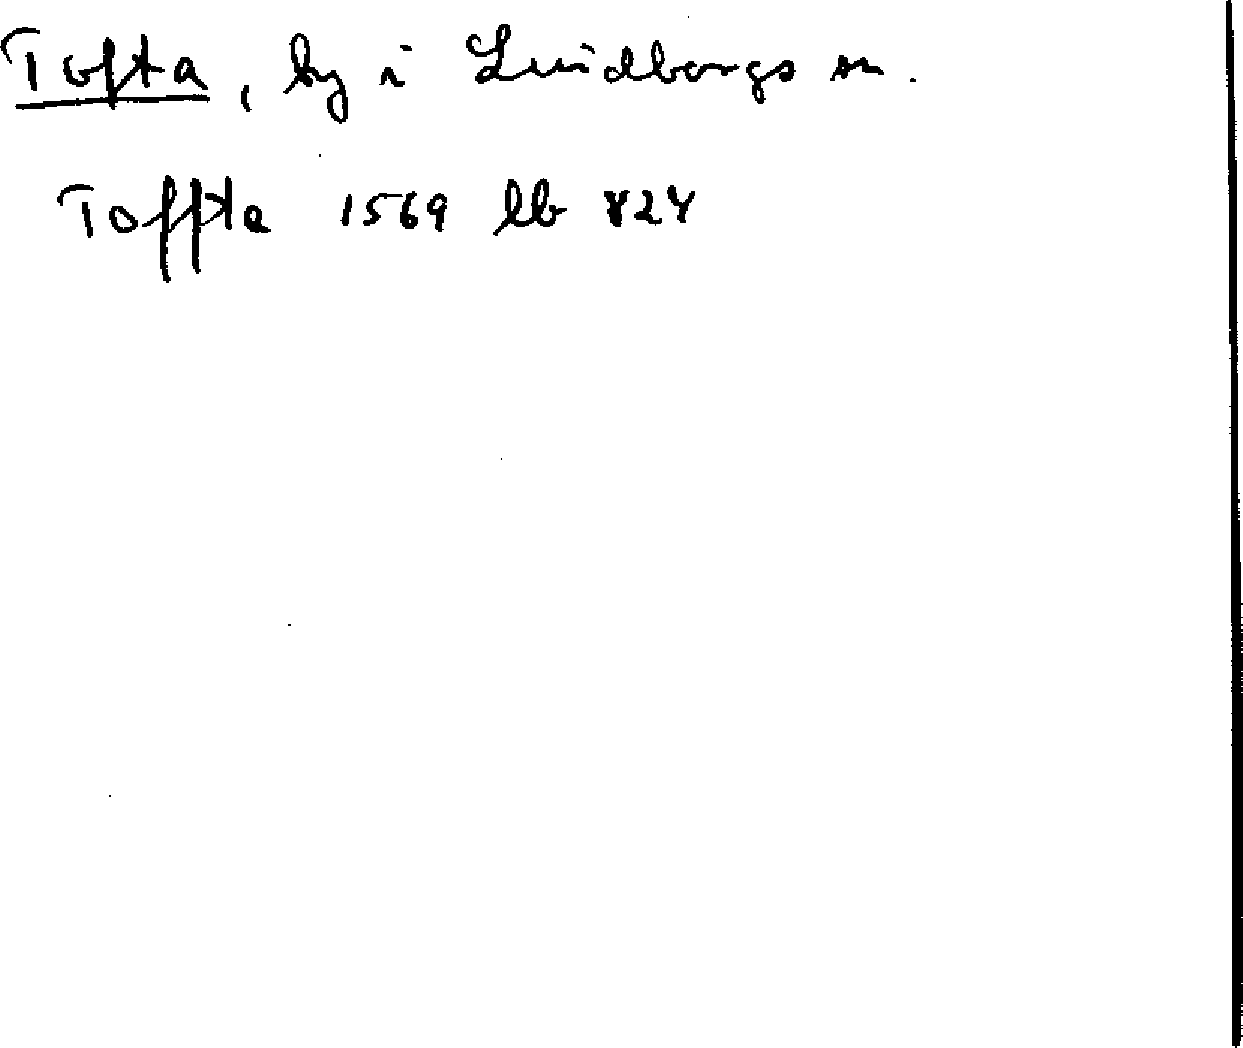 Tofta, by i Lindbergs sn.
Toffta 1569 lb 824